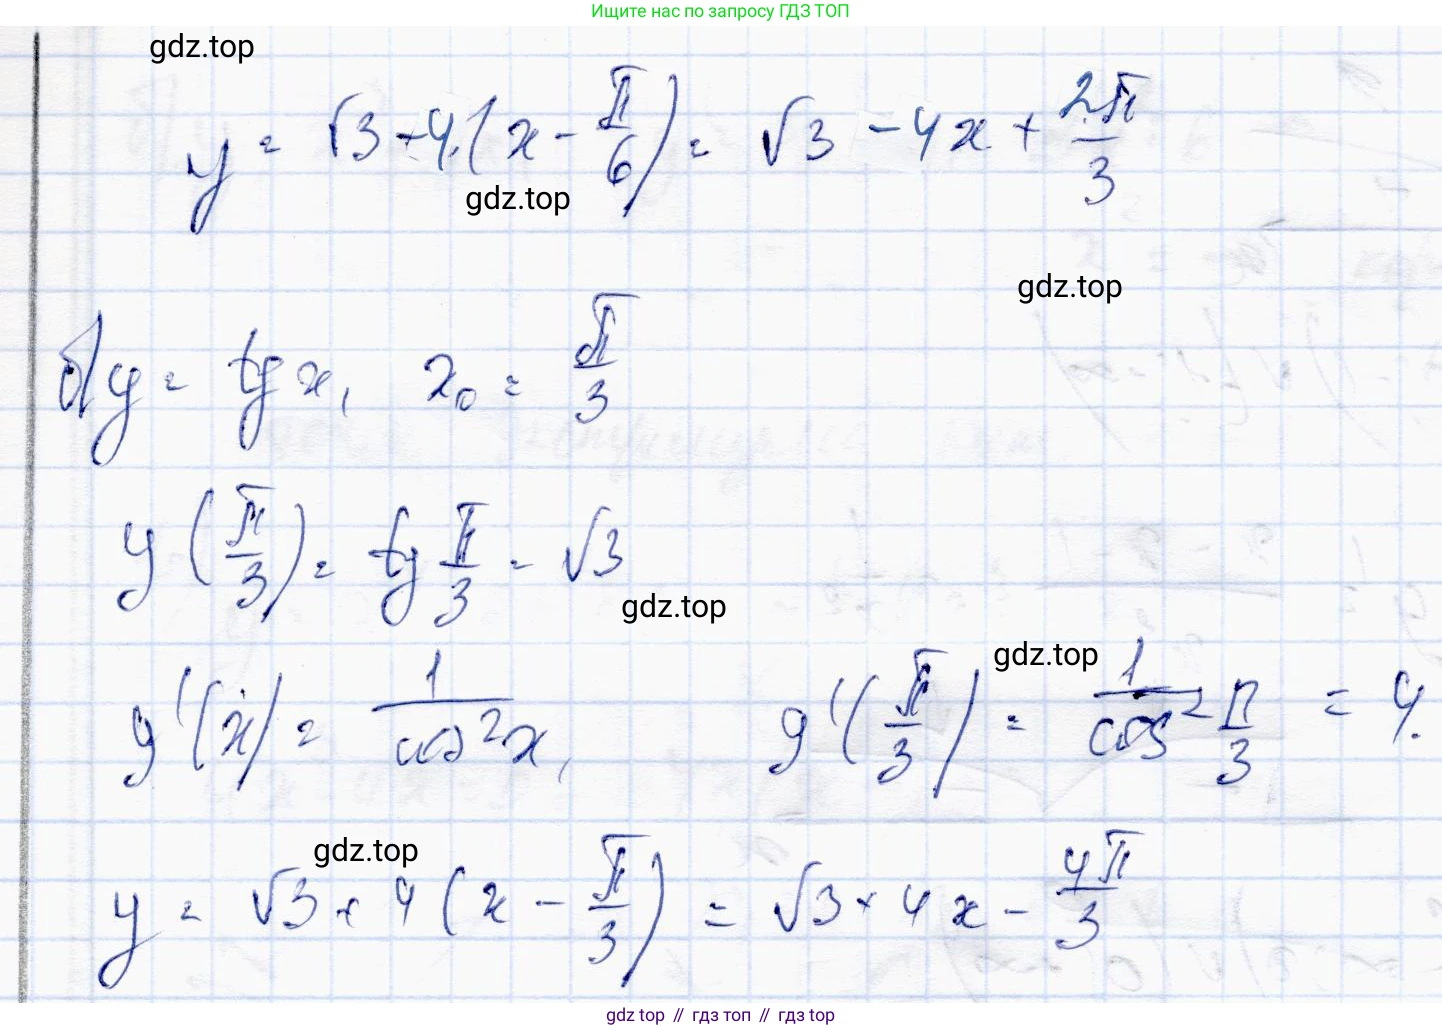 Ищите нас по запросу ГДЗ ТОП
gdz.top
y = √3 - 4·(x - π/6) = √3 - 4x + 2π/3
gdz.top
gdz.top
б) y = tg x, x₀ = π/3
y(π/3) = tg π/3 = √3
gdz.top
gdz.top
y'(x) = 1/cos²x, y'(π/3) = 1/cos² π/3 = 4.
gdz.top
y = √3 + 4(x - π/3) = √3 + 4x - 4π/3
gdz top // гдз топ // гдз top